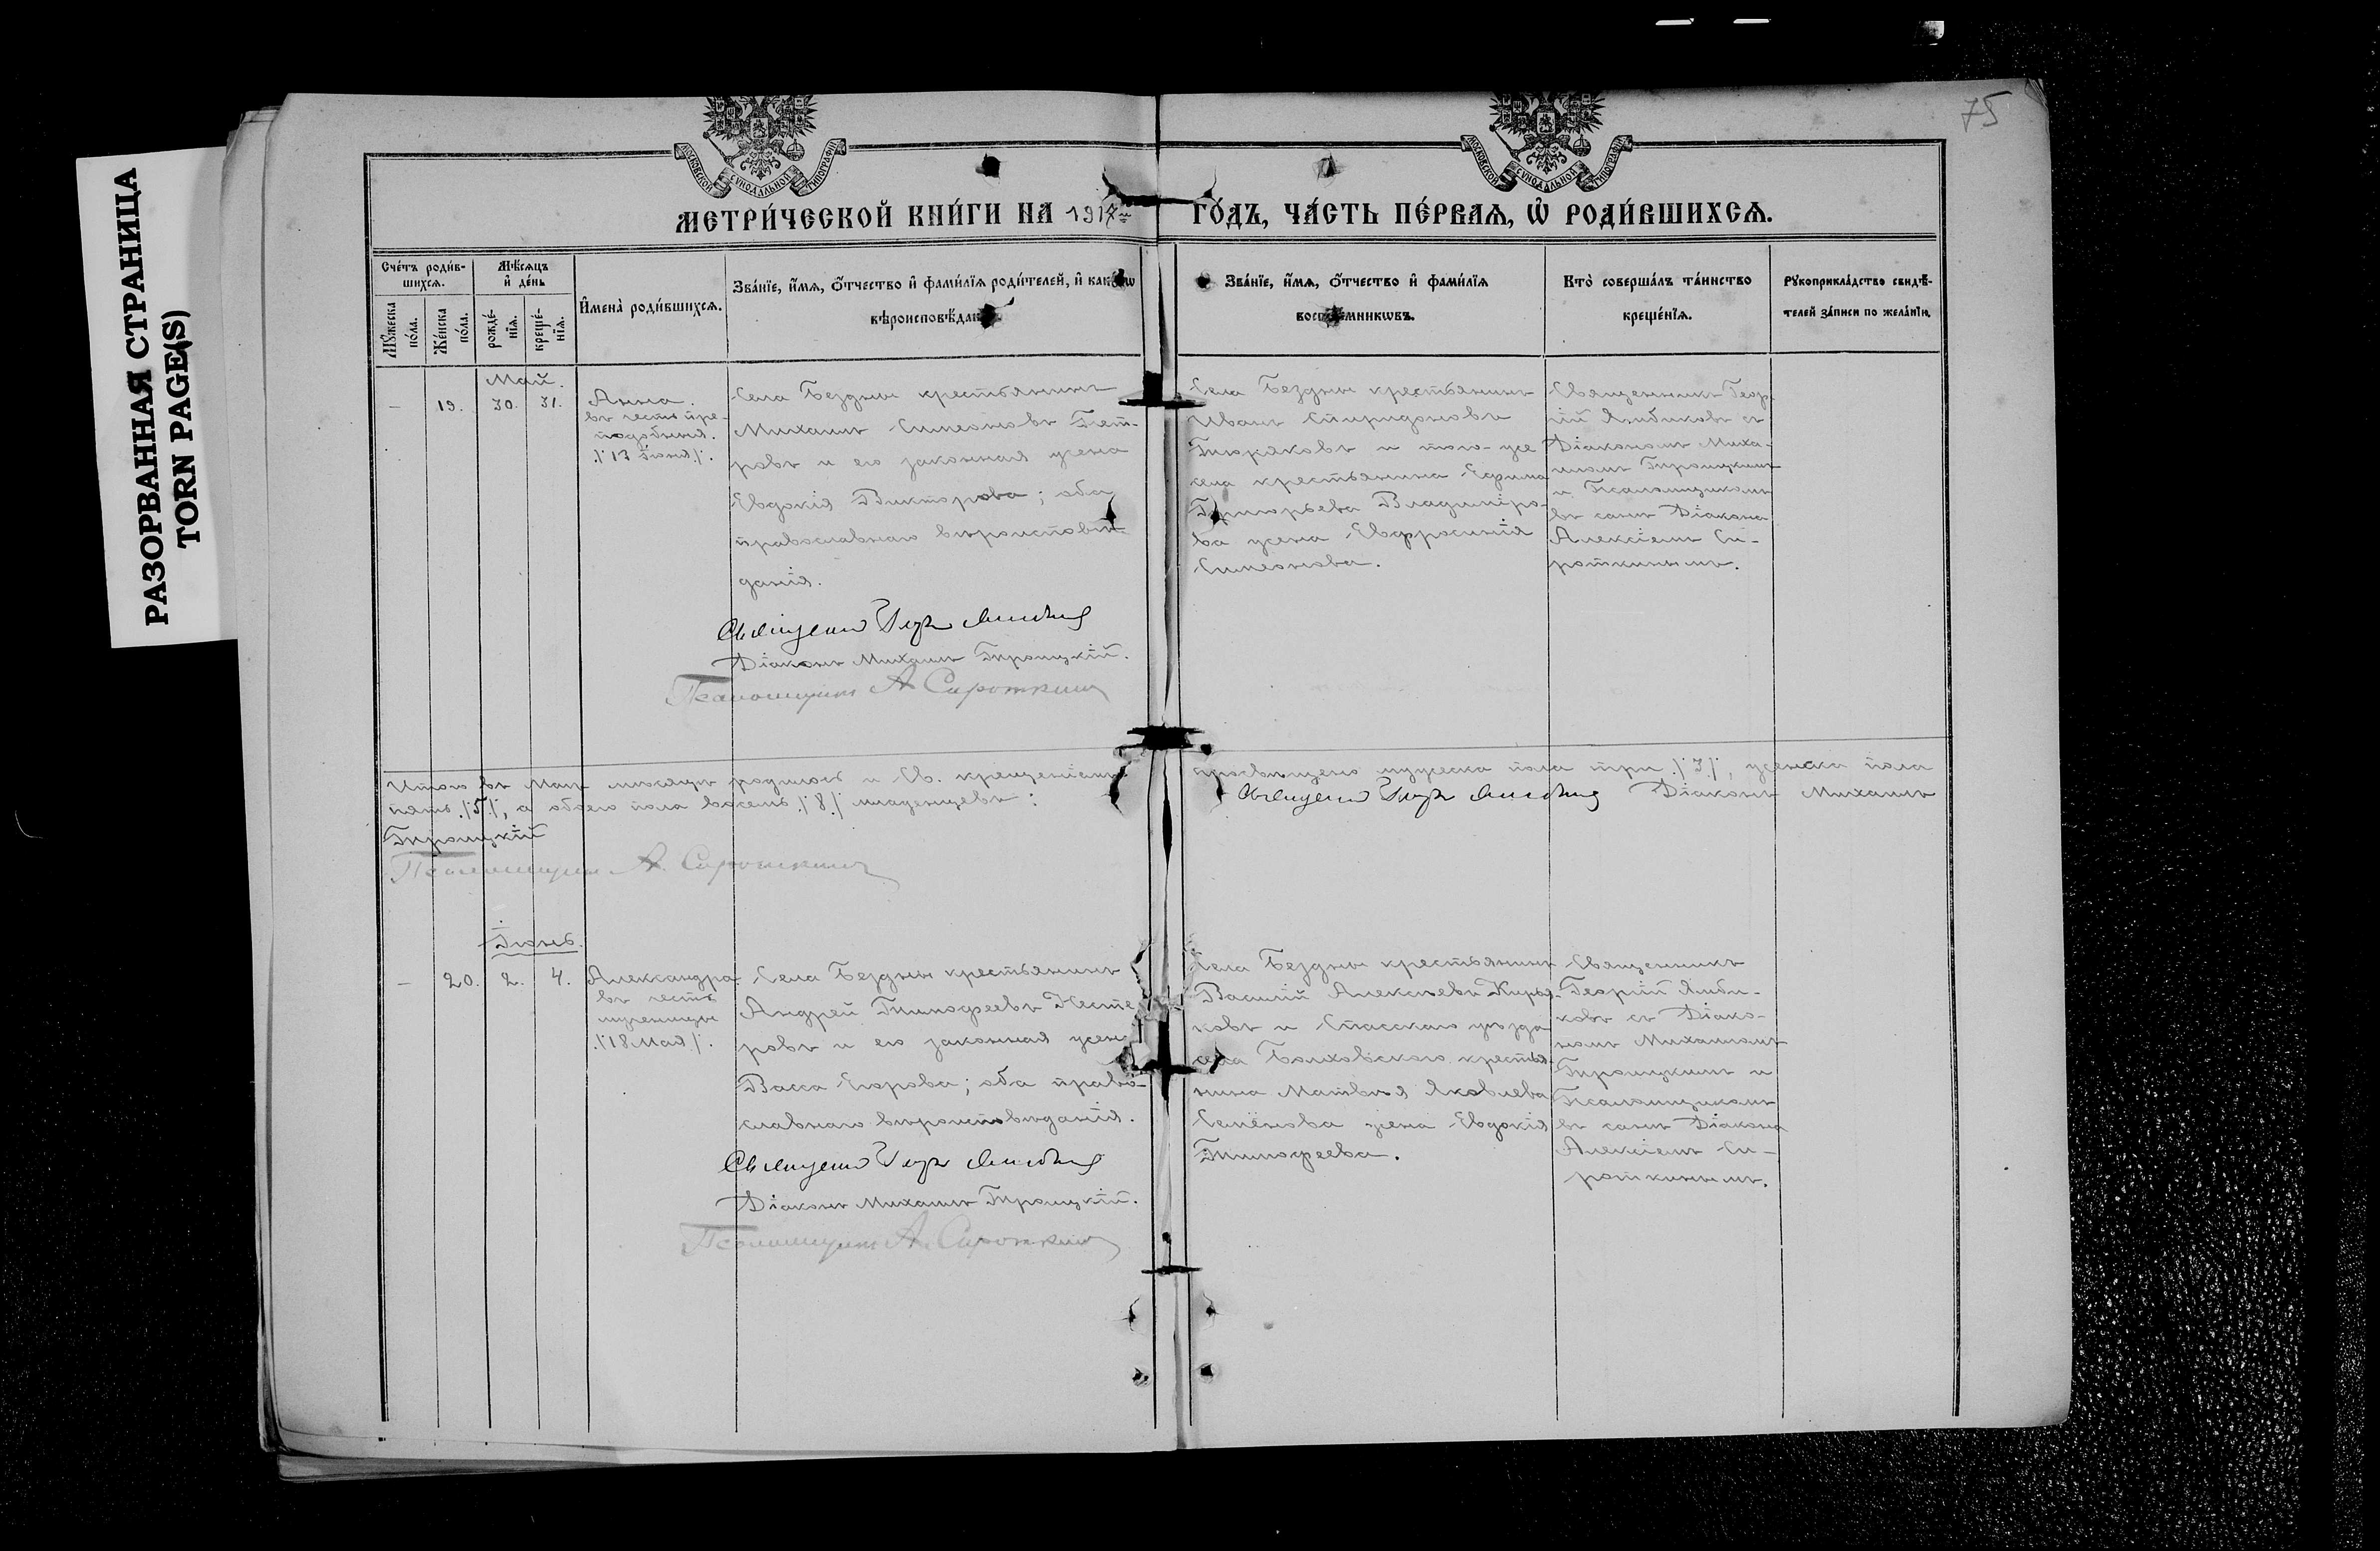 75
РАЗОРВАННАЯ СТРАНИЦА
TORN PAGE(S)
МОСКОВСКОЙ СУНОДАЛЬНОЙ ТИПОГРАФІИ
МОСКОВСКОЙ СУНОДАЛЬНОЙ ТИПОГРАФІИ
МЕТРИ́ЧЕСКОЙ КНИ́ГИ НА 1917 ГО́ДЪ, ЧА́СТЬ ПЕ́РВАѦ, Ѡ҆ РОДИ́ВШИХСѦ.
Сче́тъ роди́в-
шихсѧ.
Мꙋ́жеска
по́ла.
Же́нска
по́ла.
Мѣ́сѧцъ
и҆ де́нь
рожде́-
нїѧ.
креще́-
нїѧ.
И҆мена̀ роди́вшихсѧ.
Зва́нїе, и҆́мѧ, ѻ҆́тчество и҆ фами́лїѧ роди́телей, и҆ како́гѡ
вѣроисповѣ́данїѧ
Зва́нїе, и҆́мѧ, ѻ҆́тчество и҆ фами́лїѧ
воспрїе́мникѡвъ.
Кто̀ соверша́лъ та́инство
креще́нїѧ.
Рꙋкоприкла́дство свидѣ́-
телей за́писи по жела́нїю.
Май.
— 19. 30. 31.
Анна.
въ честь пре-
подобныя.
./13 Іюня/.
Села Бездны крестьянинъ
Михаилъ Симеоновъ Пет-
ровъ и его законная жена
Евдокія Викторова; оба
православнаго вѣроисповѣ-
данія.
Діаконъ Михаилъ Троицкій.
Псаломщикъ А Сироткинъ
Села Бездны крестьянинъ
Иванъ Спиридоновъ
Тюряковъ и того-же
села крестьянина Ефима
Григорьева Владиміро-
ва жена Евфросинія
Симеонова.
Священникъ Геор-
гій Ямбиковъ съ
Діакономъ Миха-
иломъ Троицкимъ
и Псаломщикомъ
въ санѣ Діакона
Алексіемъ Си-
роткинымъ.
Итого въ Маѣ мѣсяцѣ родилось и Св. крещеніемъ просвѣщено мужеска пола три /3/, женска пола
пять ./5/., а обоего пола восемь ./8./ младенцевъ: Діаконъ Михаилъ
Троицкій
Псаломщикъ А. Сироткинъ
Іюнь.
— 20. 2. 4.
Александра
въ честь
мученицы
./18 Мая/.
Села Бездны крестьянинъ
Андрей Тимофеевъ Несте-
ровъ и его законная жена
Васса Егорова; оба право-
славнаго вѣроисповѣданія.
Діаконъ Михаилъ Троицкій.
Псаломщикъ А. Сироткинъ
Села Бездны крестьянинъ
Василій Алексѣевъ Кирья-
ковъ и Спасскаго уѣзда
села Болховскаго крестья-
нина Матвѣя Яковлева
Семёнова жена Евдокія
Тимофеева.
Священникъ
Георгій Ямби-
ковъ съ Діако-
номъ Михаиломъ
Троицкимъ и
Псаломщикомъ
въ санѣ Діакона
Алексіемъ Си-
роткинымъ.